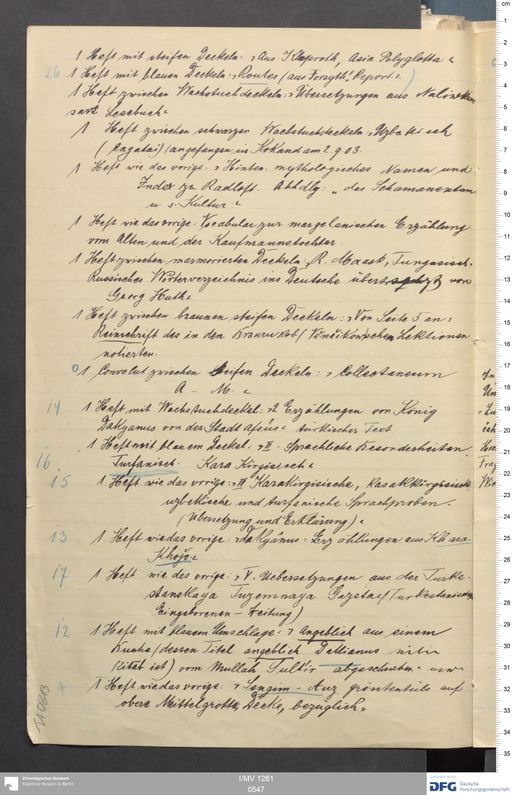 1 Heft mit steifen Deckeln: „Aus Klaproth, Asia Polyglotta“
26 1 Heft mit blauen Deckeln: „Routes (aus Forsyth, Report“)
1 Heft zwischen Wachstuchdeckeln: „Übersetzungen aus
sart Lesebuch“
1 Heft zwischen schwarzen Wachstuchdeckeln „Uzbekisch
(cagatai) angefangen in Kokand am 2.9.03.
1 Heft wie das vorige: „Hinten mythologisches Namen und
Index zu Radloff. Abhdlg: „das Schamanentum
u s. Kultur“
1 Heft wie das vorige: Vocabular zur margelanischen Erzählung
vom Alten und der Kaufmannstochter.
1 Heft zwischen marmorierten Deckeln „R. Maack, Tungusisch-
Russisches Wörterverzeichnis ins Deutsche übersetzt von
Georg Huth“
1 Heft zwischen braunen steifen Deckeln: „Von Seite 5 an:
Reinschrift des in den Lektionen
notierten.
0 1 Convolut zwischen steifen Deckeln: „Collectaneum
A - M.“
14 1 Heft mit Wachstuchdeckel: „2 Erzählungen von König
Dakyanus von der Stadt Afsus“ türkischer Text
1 Heft mit blauem Deckel: „II. Sprachliche Besonderheiten.
16. Turfanisch. Kara Kirgisisch“
15 1 Heft wie das vorige: „III Karakirgisische, Kasakkirgisische
uzbekische und turfanische Sprachproben.
(Übersetzung und Erklärung)“
13 1 Heft wie das vorige: „Dakyánus-Erzählungen aus Kara-
Khoja“
17 1 Heft wie das vorige: „V. Uebersetzungen aus der Turke-
stanskaya Tuzemnaya Gazeta (Turkestanische
Eingeborenen-Zeitung)
12 1 Heft mit blauem Umschlage: „Angeblich aus einem
Buche (dessen Titel angeblich
(citat ist) vom Mullah abgeschrieben“ usw
+ 1 Heft wie das vorige: „Sengim-Auz grösstenteils auf
obere Mittelgrotte, Decke, bezüglich“
TA 6613
I/MV 1261
0547
Ethnologisches Museum
Staatliche Museen zu Berlin
DFG Deutsche
Forschungsgemeinschaft
cm
1
2
3
4
5
6
7
8
9
10
11
12
13
14
15
16
17
18
19
20
21
22
23
24
25
26
27
28
29
30
31
32
33
34
35